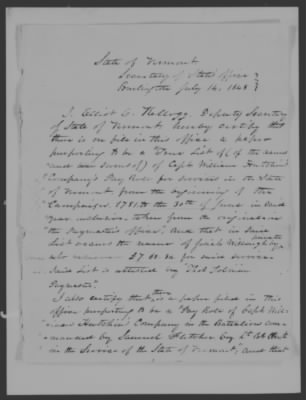 State of Vermont
Secretary of State's Office
Burlington July 14, 1848.
I, Elliot C. Kellogg, Deputy Secretary
of State of Vermont, hereby certify that
there is on file in this office a paper
purporting to be a "True List of (of the names
and sums) of Capt William Hutchins'
Company's Pay Role for services in the State
of Vermont from the beginning of the
Campaign, 1781, to the 30th of June in said
year inclusive, taken from the originals in
the Paymaster's office". And that in said
List occurs the name of Josiah Willoughby private
who received £7.60. for said service
Said List is attested by "Thos Tolman
Paymaster".
I also certify that there is a paper filed in this
office purporting to be a "Pay Role of Capt Wil-
liam Hutchins' Company in the Battalion com-
manded by Samuel Fletcher Esq Lt Col Comdt
in the Service of the State of Vermont", and that